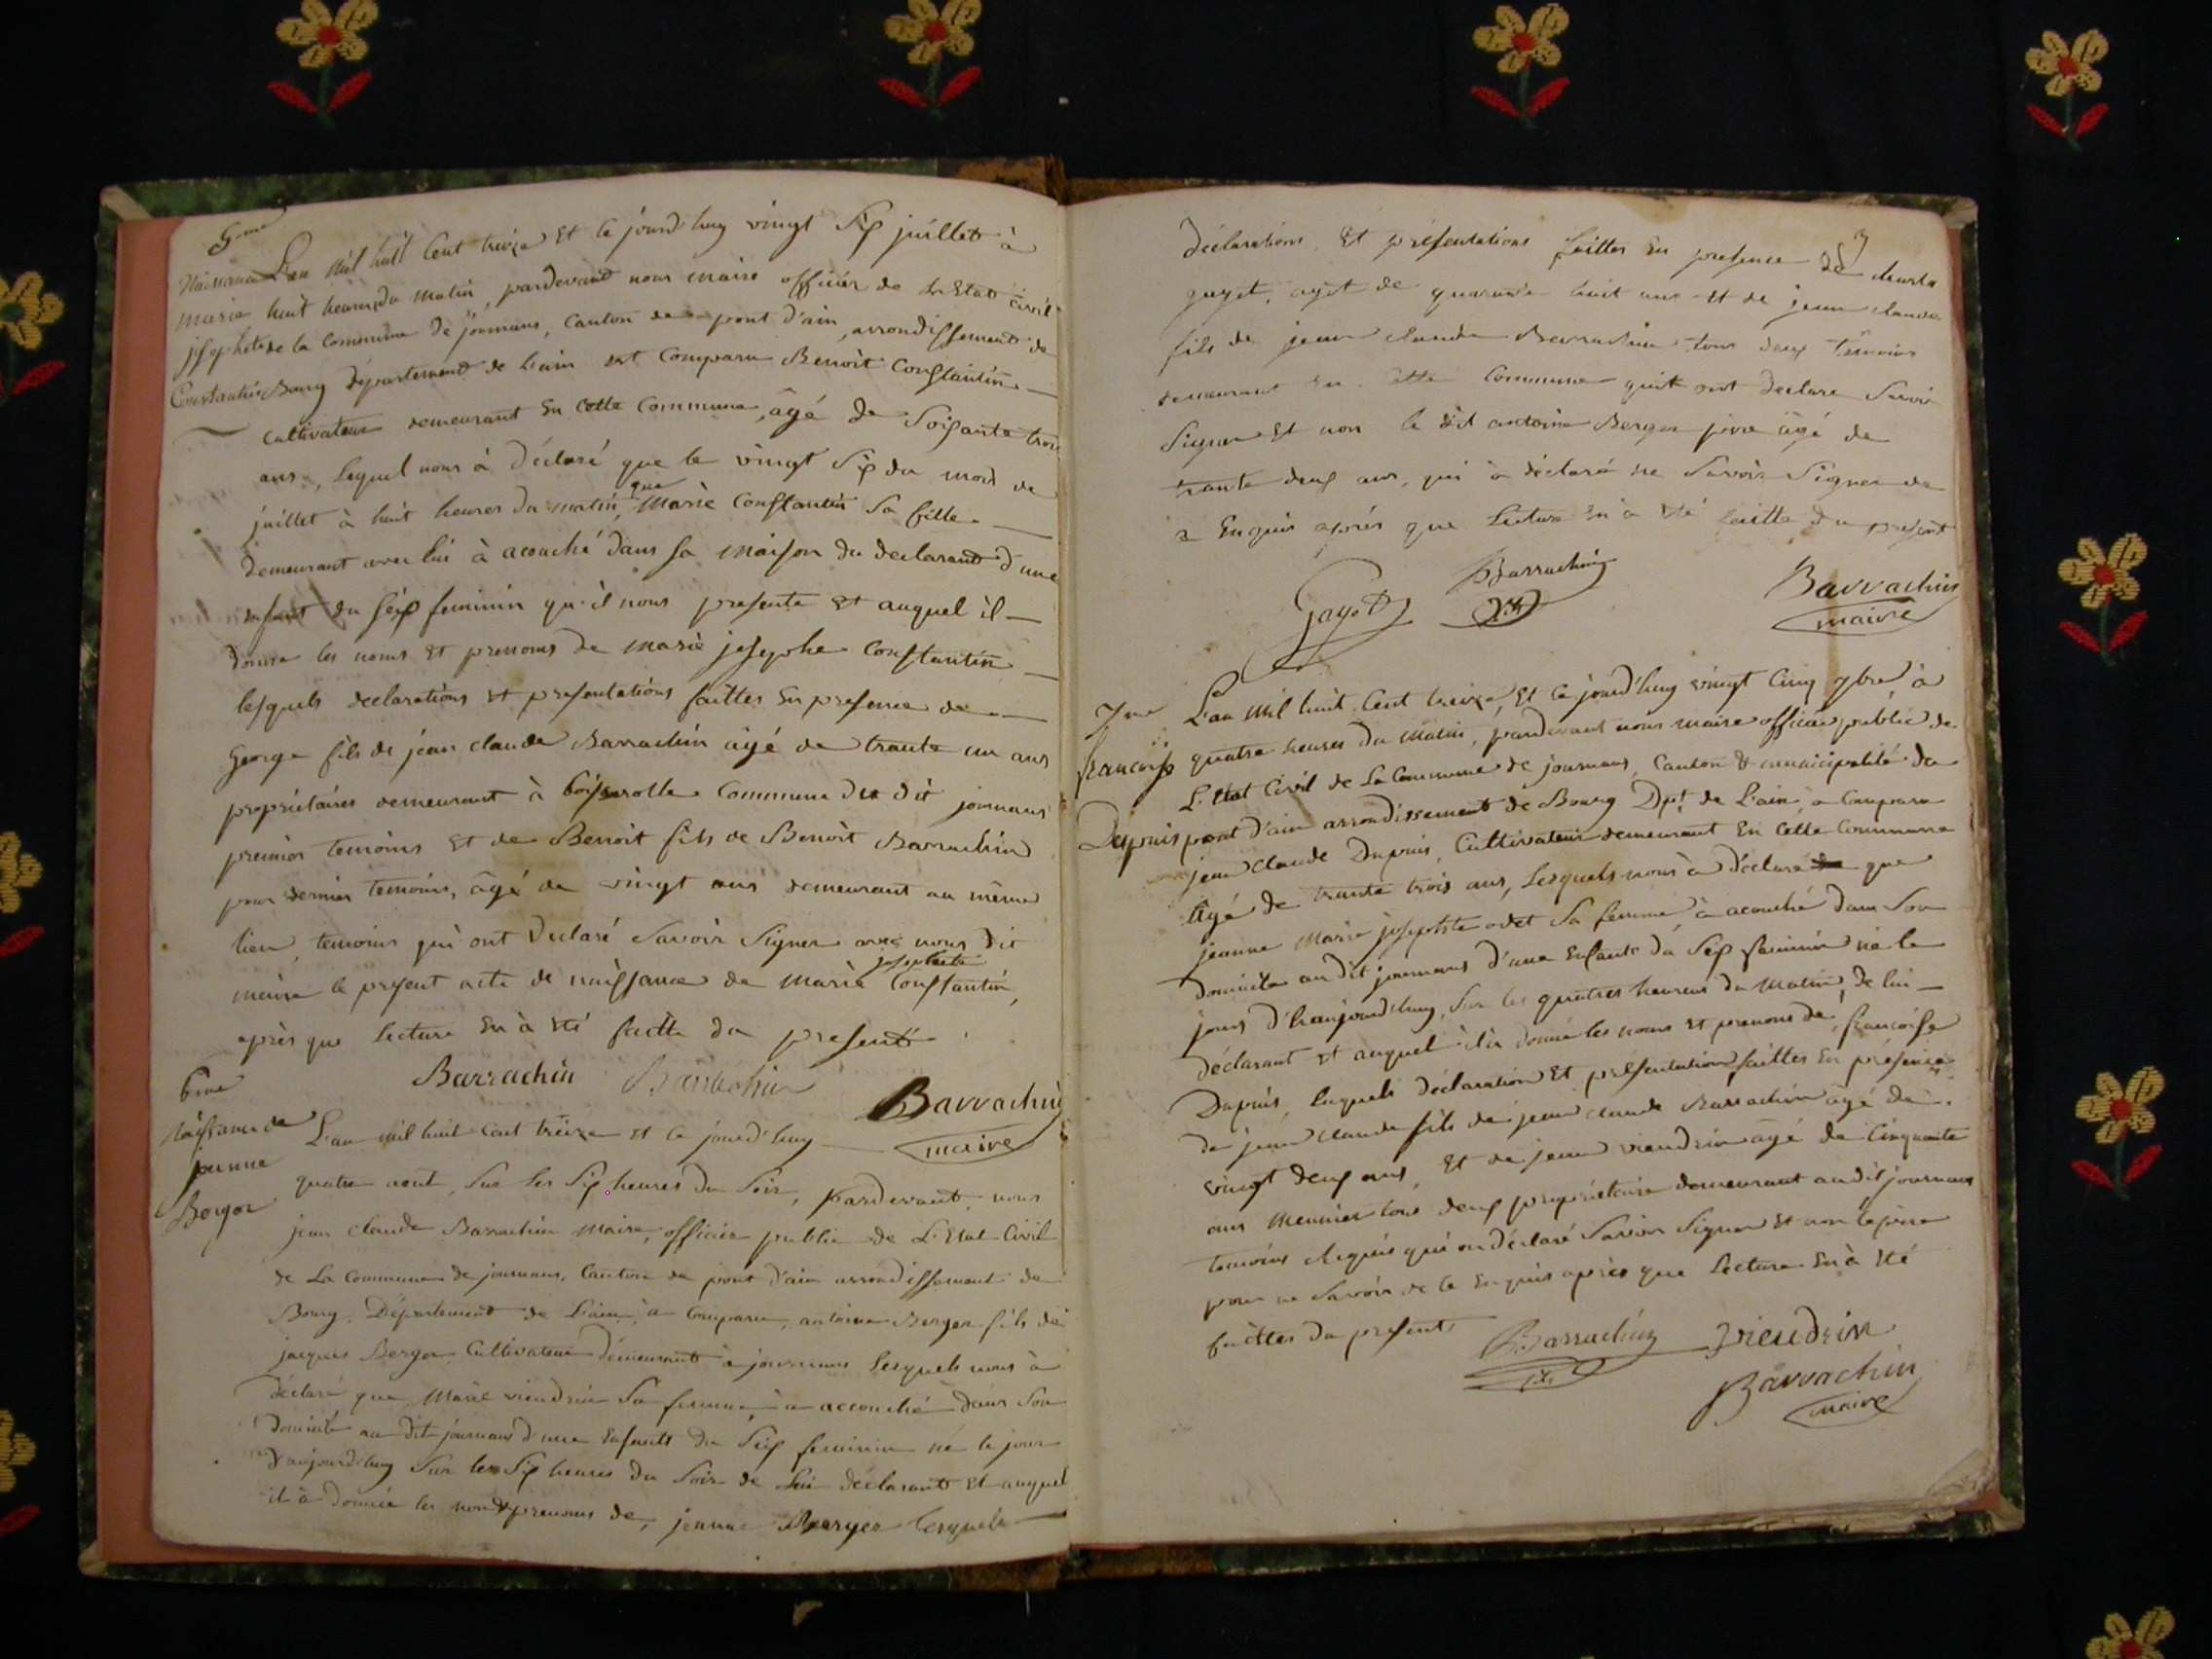 5me
Naissance
marie
josephte
Constantin
L'an mil huit Cent treize Et le jourd'huy vingt Six juillet à
huit heures du matin, pardevant nous maire officier de L'Etat civil
de la Commune de journans, Canton de pont d'ain, arrondissement de
Bourg département de L'ain est Comparu Benoit Constantin
cultivateur demeurant En Cette Commune, âgé de Soixante trois
ans, lequel nous à Déclaré que le vingt Six du mois de
juillet à huit heures du matin, que Marie Constantin Sa fille
demeurant avec lui à acouché dans Sa maison du declarant d'une
enfant du Sexe feminin qu'il nous presente Et auquel il
donne les noms Et prenoms de marie josephe Constantin
lesquels declarations Et presentations faittes En presence de
George fils de jean claude Barrachin âgé de trante un ans
propriétaires demeurant à Commune du dit journans
premier temoins Et de Benoit fils de Benoit Barrachin
pour dernier temoins, âgé de vingt ans demeurant au même
lieu, temoins qui ont Declaré Savoir Signer avec nous dit
maire le present acte de naissance de Marie josephte Constantin,
après que Lecture En à Eté faitte du present
Barrachin Barrachin Barrachin
maire
6me
Naissance de
jeanne
Berger
L'an mil huit Cent treize et le jourd'huy
quatre aout, Sur les Six heures du Soir, pardevant nous
jean claude Barrachin Maire, officier public de L'Etat Civil
de La Commune de journans, Canton de pont d'ain arrondissement de
Bourg, Département de L'ain, à Comparu, antoine Berger fils de
jacques Berger Cultivateur demeurant à journans Lesquels nous à
déclaré que Marie viendrin Sa femme, à accouché dans Son
Domicile au dit journans d'une Enfants du Sexe feminin né le jour
d'aujourd'huy Sur les Six heures du Soir de Lui déclarant Et auquel
il à donnée les nom & prenoms de, jeanne Berger lesquels
3
déclarations Et présentations faittes En presence de
gayet, agé de quarante huit ans Et de jean claude
fils de jean claude Barrachin tous deux temoins
demeurant En Cette Commune quit ont declaré Savoir
Signer Et non le dit antoine Berger père âgé de
trante deux ans, qui à déclaré ne Savoir Signer de
a Enquis après que Lecture En à Eté faitte du present
Gayet Barrachin Barrachin
maire
7me
francoise
Dupuis
L'an mil huit Cent treize, Et le jourd'huy vingt Cinq 7bre à
quatre heures du Matin, pardevant nous maire officier public de
L'Etat Civil de La Commune de journans, Canton & municipalité de
pont d'ain arrondissement de Bourg Dpt de L'ain, a Comparu
jean Claude Dupuis, Cultivateur demeurant En Cette Commune
âgé de trante trois ans, Lesquels nous à déclaré que
jeanne Marie josephte odet Sa femme, à acouché dans Son
domicile au dit journans d'une Enfants du Sexe feminin né le
jours d'haujourd'huy, Sur les quatres heures du Matin, de lui
déclarant et auquel il à donné les noms Et prenoms de, françoise
Dupuis, Lesquels déclaration Et présentation faittes En présence
de jean Claude fils de jean claude Barrachin âgé de
vingt deux ans, Et de jean viendrin âgé de Cinquante
ans Meunier tous deux propriétaire demeurant au dit journans
temoins Requis qui on déclaré Savoir Signer Et non le père
pour ne Savoir de le Enquis après que Lecture En à Eté
faittes du present
Barrachin Viendrin
Barrachin
maire